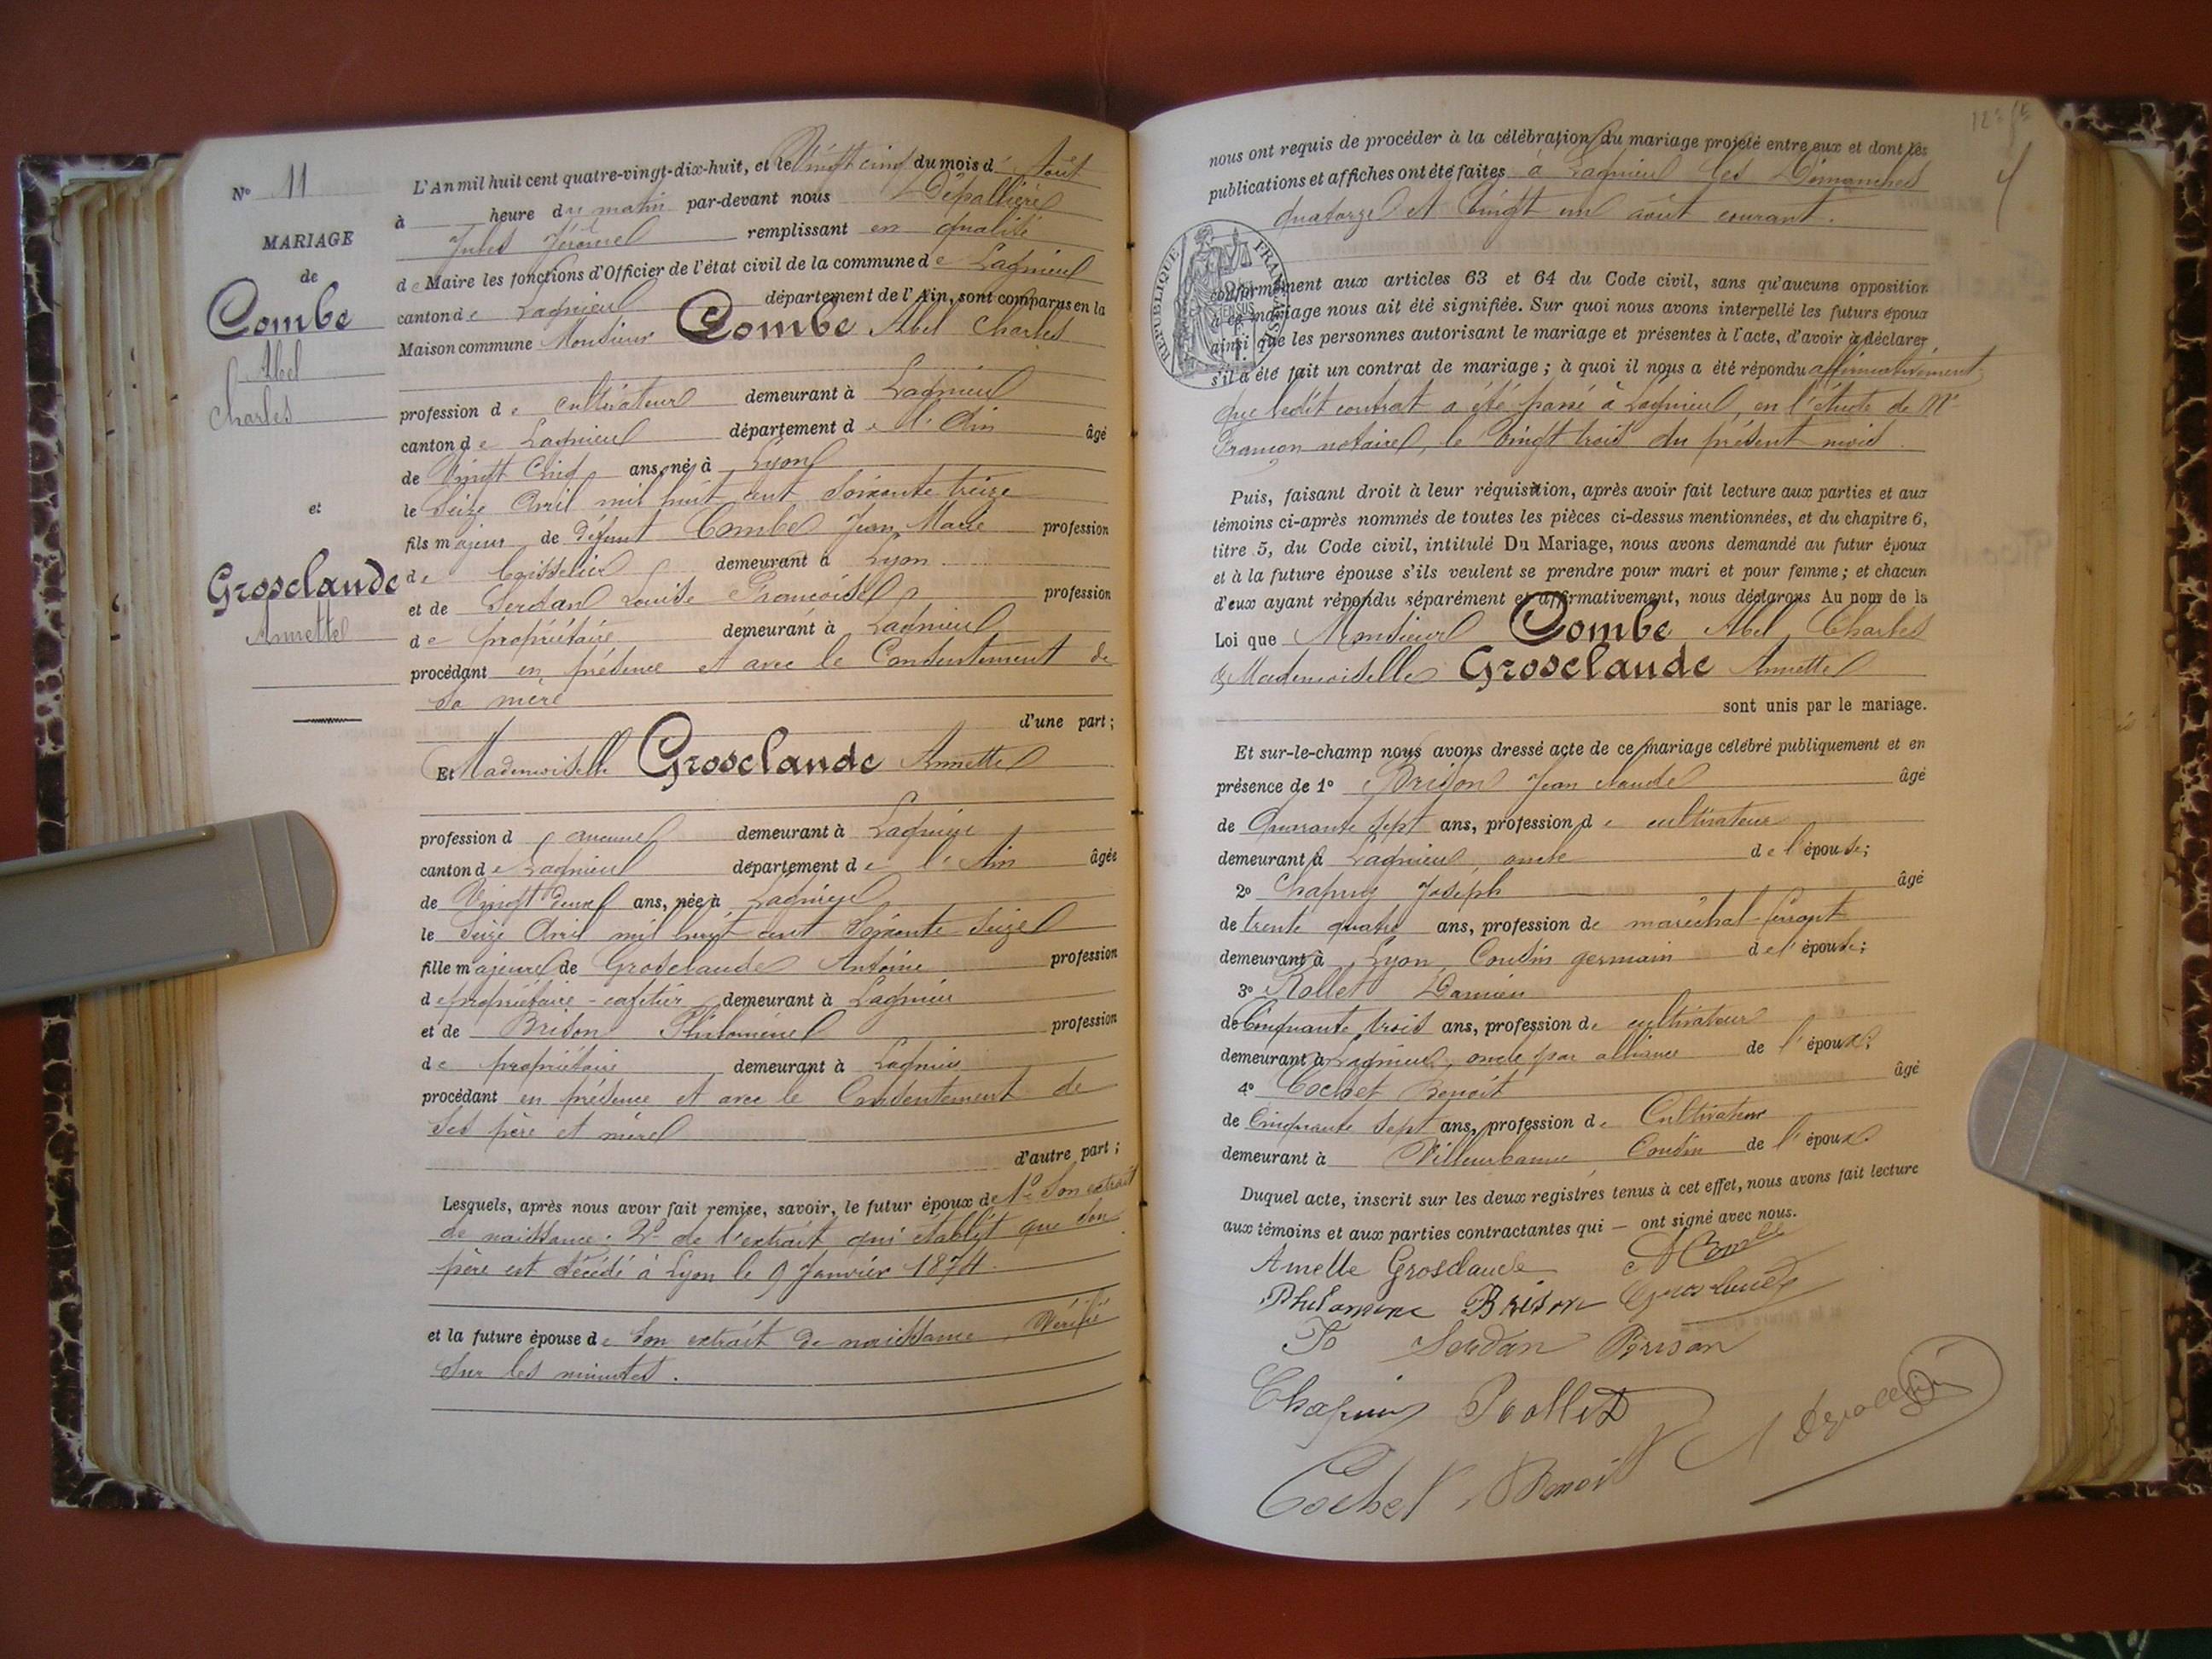 N° 11
MARIAGE
de
Combe
Abel
Charles
et
Grosclaude
Annette
L'An mil huit cent quatre-vingt-dix-huit, et le Vingt cinq du mois d' Août
à heure du matin par-devant nous Dépallière
Jules Jérôme remplissant en qualité
de Maire les fonctions d'Officier de l'état civil de la commune de Lagnieu
canton de Lagnieu département de l'Ain, sont comparus en la
Maison commune Monsieur Combe Abel Charles
profession de cultivateur demeurant à Lagnieu
canton de Lagnieu département de l'Ain âgé
de Vingt Cinq ans, né à Lyon
le Seize Avril mil huit cent Soixante treize
fils majeur de défunt Combe Jean Marie profession
de demeurant à Lyon
et de Serdan Louise Françoise profession
de propriétaire demeurant à Lagnieu
procédant en présence et avec le Consentement de
Sa mère
d'une part;
Et Mademoiselle Grosclaude Annette
profession d aucune demeurant à Lagnieu
canton de Lagnieu département de l'Ain âgée
de Vingt deux ans, née à Lagnieu
le Seize Avril mil huit cent Soixante Seize
fille majeure de Grosclaude Antoine profession
de propriétaire-cafetier demeurant à Lagnieu
et de Brison Philomène profession
de propriétaire demeurant à Lagnieu
procédant en présence et avec le Consentement de
Ses père et mère
d'autre part;
Lesquels, après nous avoir fait remise, savoir, le futur époux de 1° Son extrait
de naissance; 2° de l'extrait qui établit que Son
père est décédé à Lyon le 9 Janvier 1874.
et la future épouse de Son extrait de naissance. Vérifié
Sur les minutes.
nous ont requis de procéder à la célébration du mariage projeté entre eux et dont les
publications et affiches ont été faites à Lagnieu les Dimanches
quatorze et vingt un août courant.
RÉPUBLIQUE FRANÇAISE
conformément aux articles 63 et 64 du Code civil, sans qu'aucune opposition
à ce mariage nous ait été signifiée. Sur quoi nous avons interpellé les futurs époux
ainsi que les personnes autorisant le mariage et présentes à l'acte, d'avoir à déclarer
s'il a été fait un contrat de mariage; à quoi il nous a été répondu affirmativement,
que ledit contrat a été passé à Lagnieu, en l'étude de Me
Françon notaire, le vingt trois du présent mois.
Puis, faisant droit à leur réquisition, après avoir fait lecture aux parties et aux
témoins ci-après nommés de toutes les pièces ci-dessus mentionnées, et du chapitre 6,
titre 5, du Code civil, intitulé Du Mariage, nous avons demandé au futur époux
et à la future épouse s'ils veulent se prendre pour mari et pour femme; et chacun
d'eux ayant répondu séparément et affirmativement, nous déclarons Au nom de la
Loi que Monsieur Combe Abel Charles
& Mademoiselle Grosclaude Annette
sont unis par le mariage.
Et sur-le-champ nous avons dressé acte de ce mariage célébré publiquement et en
présence de 1° Brison Jean Claude âgé
de Quarante Sept ans, profession de cultivateur
demeurant à Lagnieu, oncle de l'épouse;
2° Chapuy Joseph âgé
de trente quatre ans, profession de maréchal-ferrant
demeurant à Lyon, Cousin germain de l'épouse;
3° Rollet Damien
de Cinquante trois ans, profession de cultivateur
demeurant à Lagnieu, oncle par alliance de l'époux;
4° Cochet Benoit âgé
de Cinquante Sept ans, profession de Cultivateur
demeurant à Villeurbanne Cousin de l'époux
Duquel acte, inscrit sur les deux registres tenus à cet effet, nous avons fait lecture
aux témoins et aux parties contractantes qui — ont signé avec nous.
Annette Grosclaude A Combe
Philomène Brison Grosclaude
Serdan Brison
Chapuy Rollet
Cochet Benoit